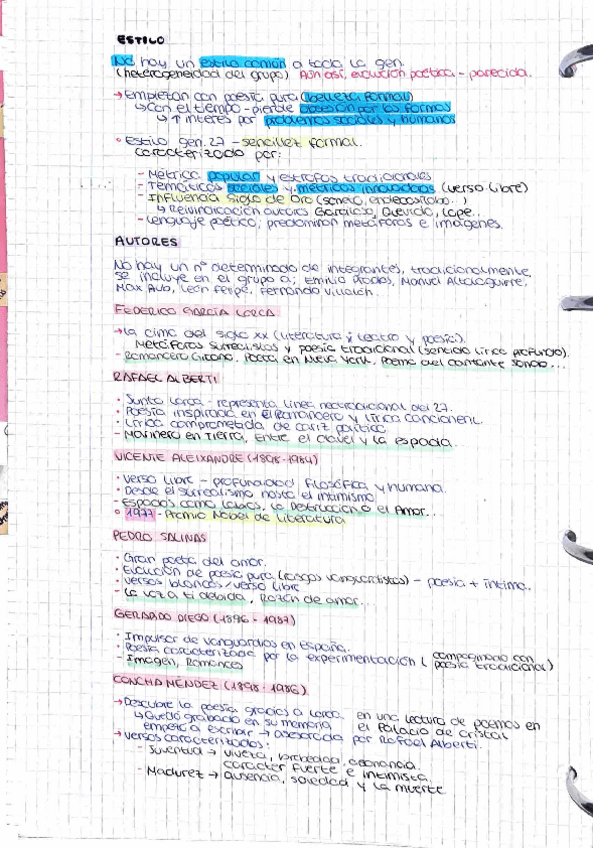 ESTILO
No hay un estilo común a toda la gen.
(heterogeneidad del grupo) Aún así, evolución poética - parecida.
→ Empiezan con poesía pura (belleza formal)
↳ Con el tiempo - pierde obsesión por las formas
↳ ↑ interés por problemas sociales y humanos
• Estilo gen. 27 - sencillez formal.
caracterizado por:
- Métrica popular y estrofas tradicionales
- Temáticas sociales y métricas innovadoras (verso libre)
- Influencia Siglo de Oro (soneto, endecasílabo..)
↳ Reivindicación autores Garcilaso, Quevedo, Lope.
- Lenguaje poético, predominan metáforas e imágenes.
AUTORES
No hay un nº determinado de integrantes, tradicionalmente
se incluye en el grupo a; Emilio Prados, Manuel Altolaguirre,
Max Aub, León Felipe, Fernando Villalón.
FEDERICO GARCÍA LORCA
→ La cima del siglo XX (literatura; teatro y poesía).
Metáforas surrealistas y poesía tradicional (sencido lírico profundo).
- Romancero Gitano, Poeta en Nueva York, Poema del cantante sonoro...
RAFAEL ALBERTI
• Junto Lorca - representa línea neotradicional del 27.
• Poesía inspirada en el Romancero y lírica cancioneril.
• Lírica comprometida de cariz político
- Marinero en Tierra, Entre el clavel y la espada.
VICENTE ALEIXANDRE (1898-1984)
• Verso libre - profundidad filosófica y humana.
• Desde el surrealismo hasta el intimismo
- Espadas como labios, la destrucción o el Amor...
• 1977 - Premio Nobel de Literatura
PEDRO SALINAS
• Gran poeta del amor.
• Evolución de poesía pura (rasgos vanguardistas) - poesía + íntima.
• Versos blancos/verso libre
- La voz a ti debida, Razón de amor...
GERARDO DIEGO (1896 - 1987)
• Impulsor de vanguardias en España.
• Poesía caracterizada por la experimentación (compaginado con
poesía tradicional)
- Imagen, Romances
CONCHA MÉNDEZ (1898-1986)
→ Descubre la poesía gracias a Lorca. en una lectura de poemas en
↳ Quedó grabado en su memoria el Palacio de cristal
empieza escribir → asesorada por Rafael Alberti.
→ Versos caracterizados:
- Juventud → viveza, variedad,
carácter fuerte e intimista.
- Madurez → ausencia, soledad y la muerte.